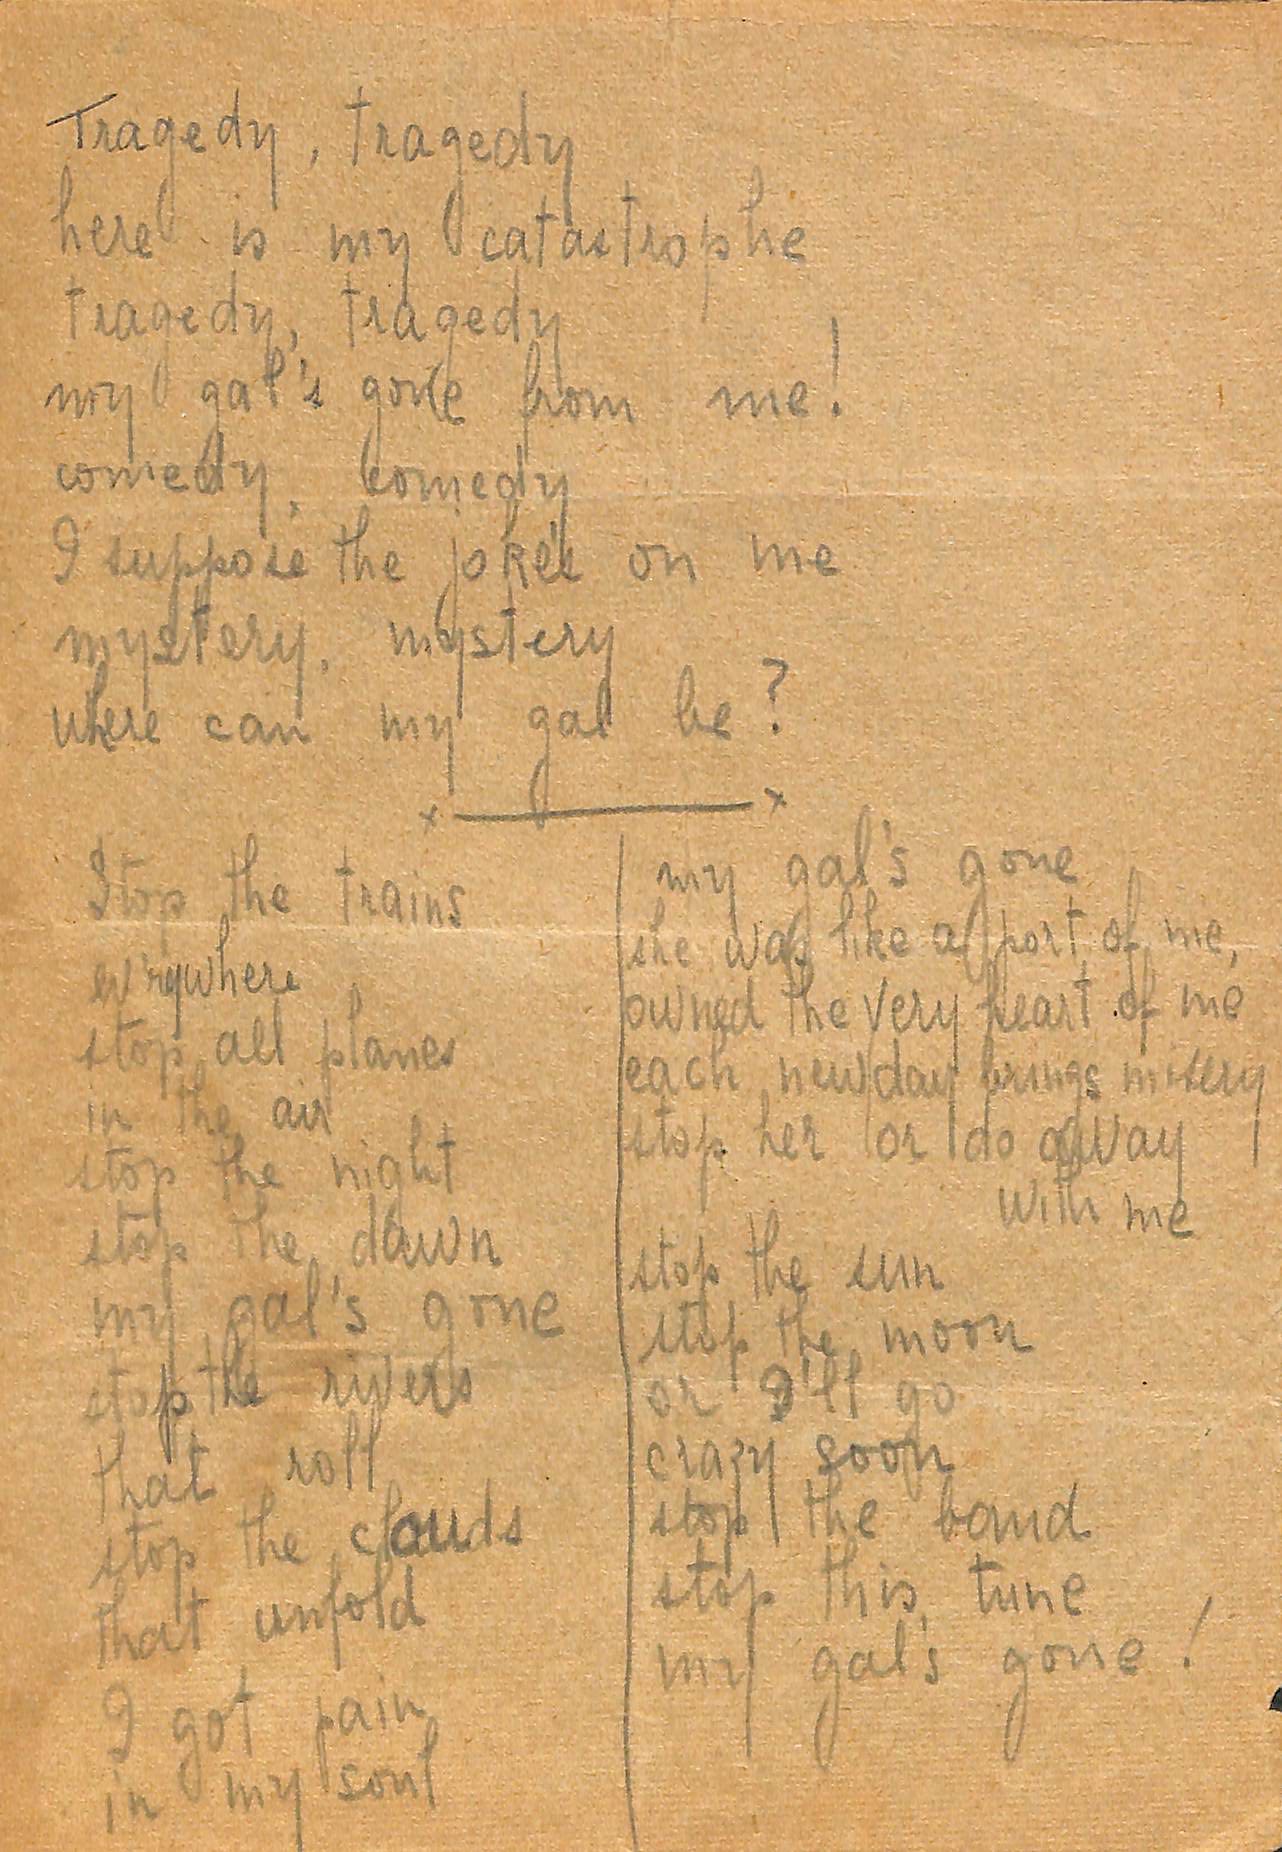 Tragedy, tragedy
here is my catastrophe
tragedy, tragedy
my gal's gone from me!
comedy, comedy
I suppose the joke's on me
mystery, mystery
where can my gal be?
x x
Stop the trains
ev'rywhere
stop all planes
in the air
stop the night
stop the dawn
my gal's gone
stop the rivers
that roll
stop the clouds
that unfold
I got pain
in my soul
my gal's gone
she was like a part of me,
owned the very heart of me
each new day brings misery
stop her or do away
with me
stop the sun
stop the moon
or I'll go
crazy soon
stop the band
stop this tune
my gal's gone!